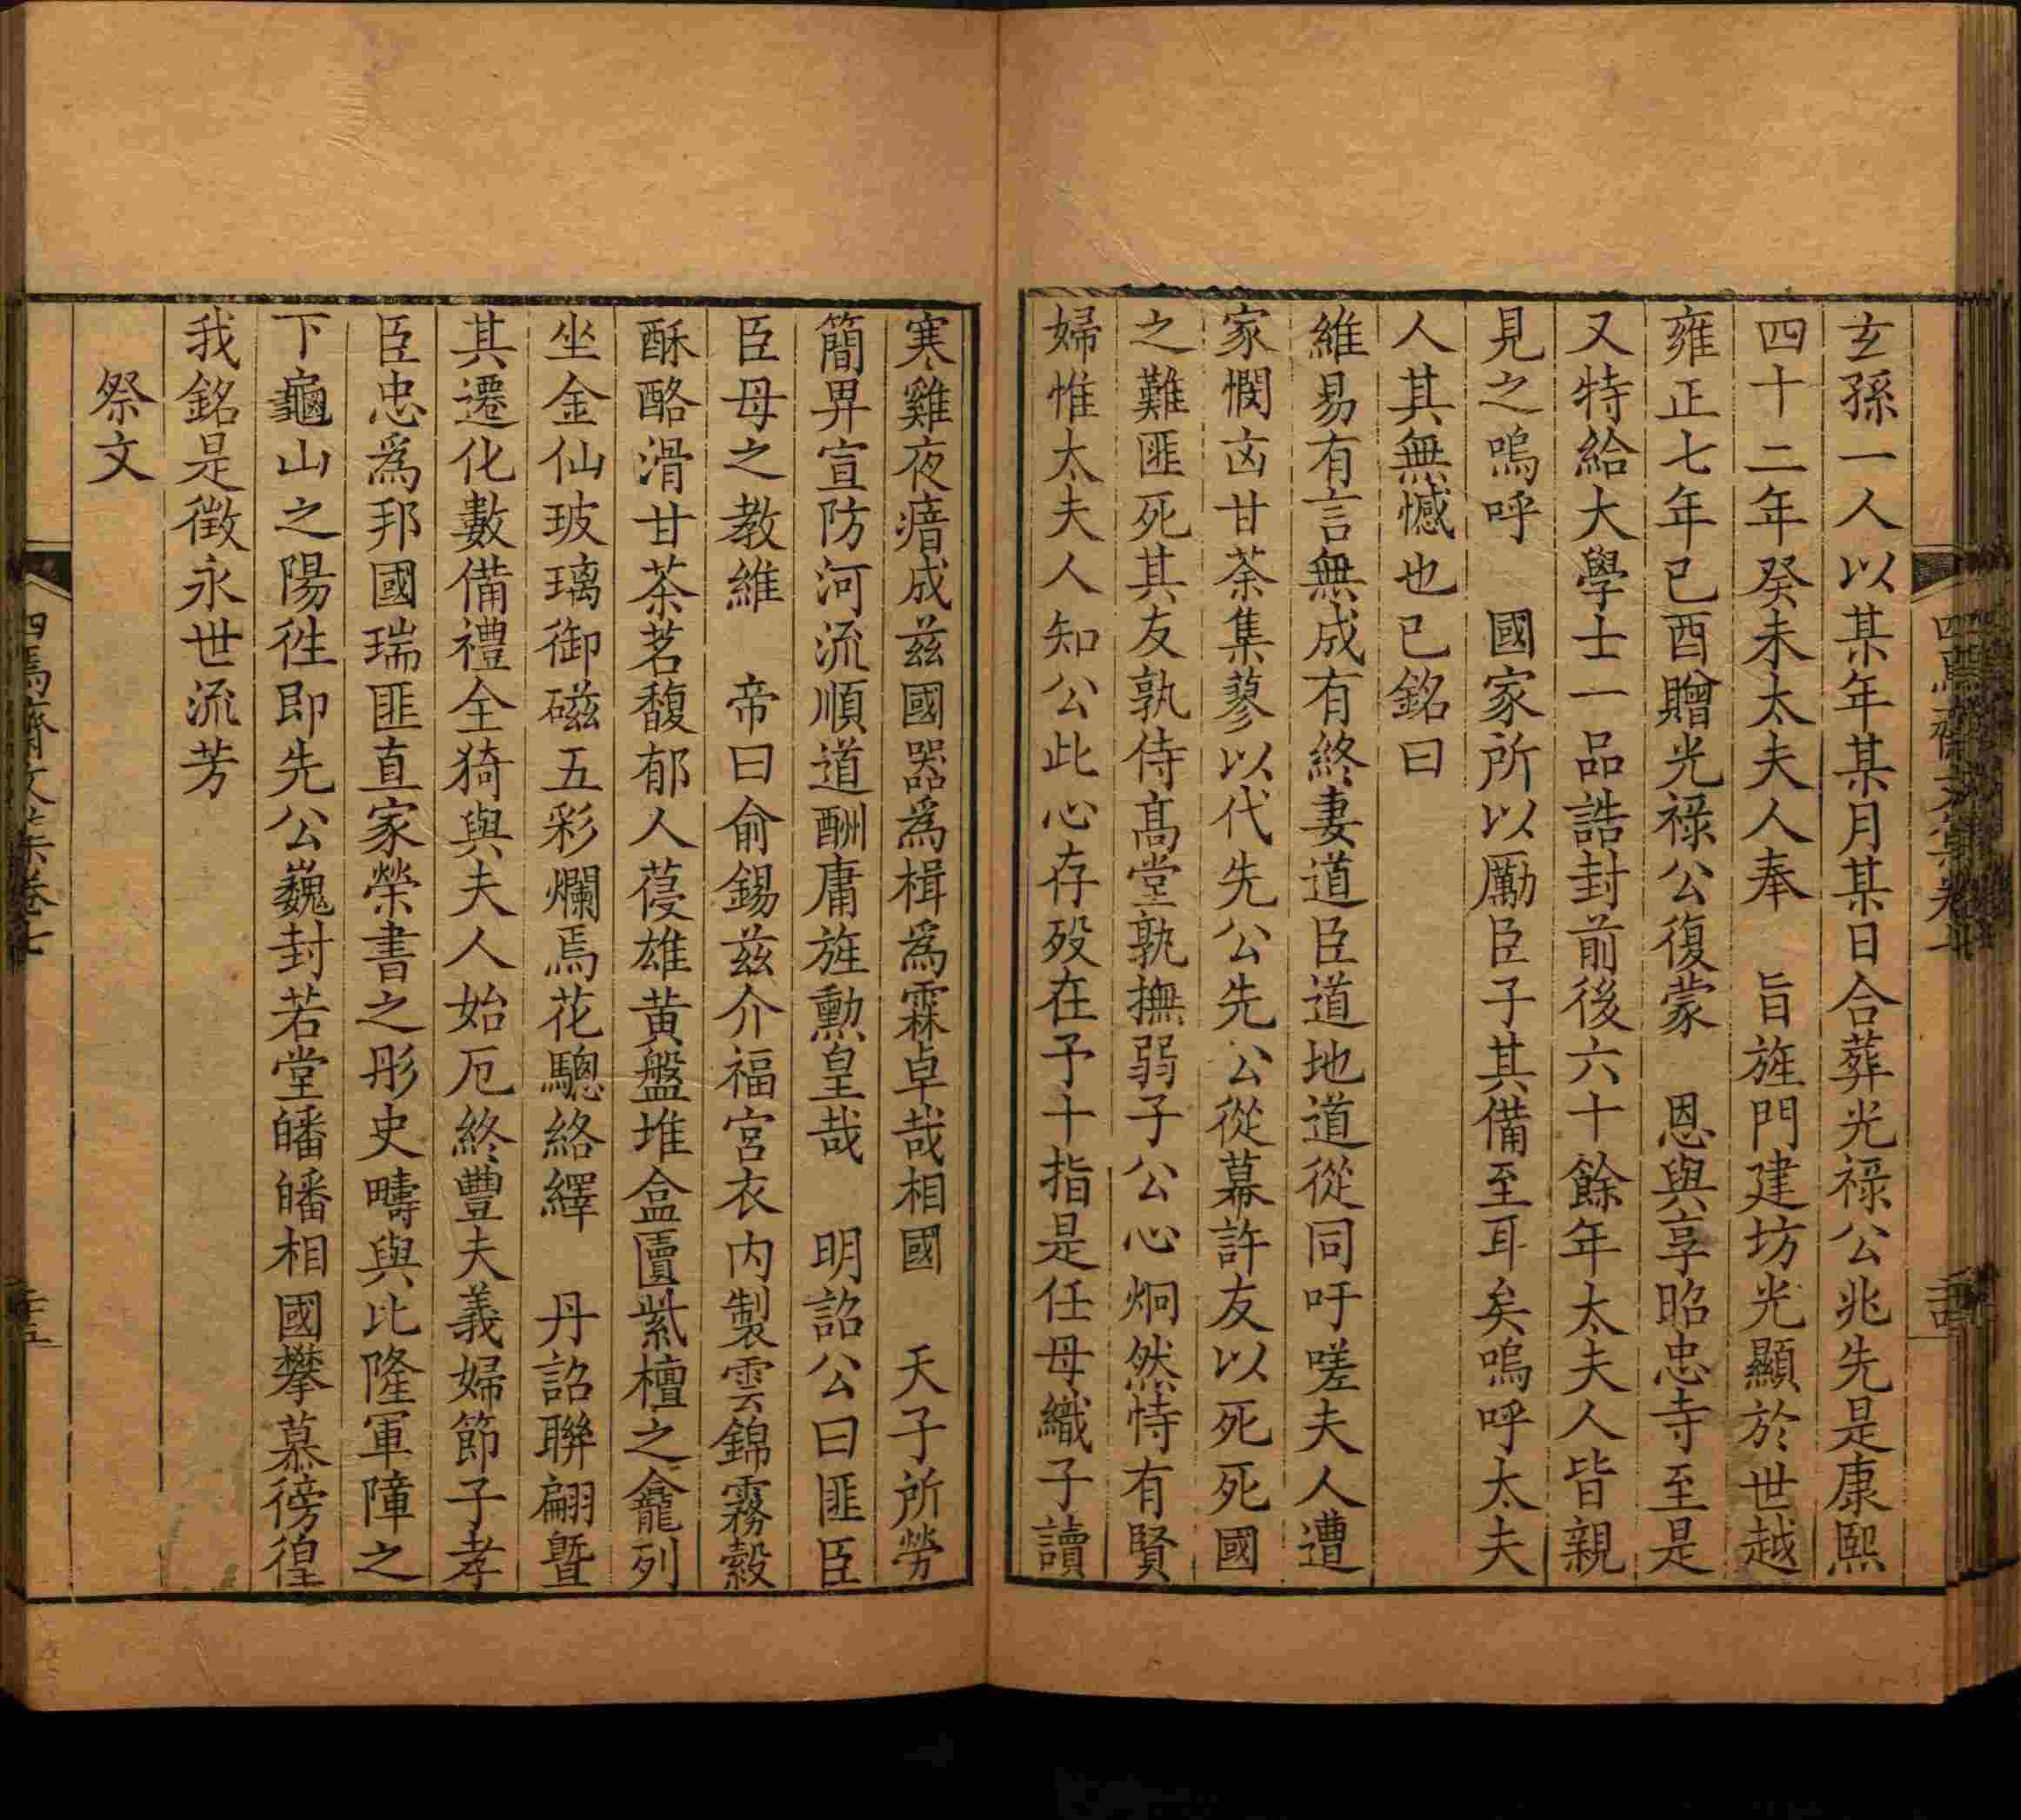 玄孫一人以某年某月某日合葬光祿公兆先是康熙
四十二年癸未太夫人奉　旨旌門建坊光顯於世越
雍正七年已酉贈光祿公復蒙　恩與享昭忠寺至是
又特給大學士一品誥封前後六十餘年太夫人皆親
見之嗚呼　國家所以勵臣子其備至耳矣嗚呼太夫
人其無憾也已銘曰
維易有言無成有終妻道臣道地道從同吁嗟夫人遭
家憫凶甘荼集蓼以代先公先公從幕許友以死死國
之難匪死其友孰侍高堂孰撫弱子公心炯然恃有賢
婦惟太夫人知公此心存歿在予十指是任母織子讀
寒雞夜瘖成茲國器爲楫爲霖卓哉相國　天子所勞
簡畀宣防河流順道酬庸旌勲皇哉　明詔公曰匪臣
臣母之教維　帝曰俞錫茲介福宮衣内製雲錦霧縠
酥酪滑甘茶茗馥郁人葠雄黄盤堆盒匵紫檀之龕列
坐金仙玻璃御磁五彩爛焉花驄絡繹　丹詔聯翩曁
其遷化數備禮全猗與夫人始厄終豐夫義婦節子孝
臣忠爲邦國瑞匪直家榮書之彤史疇與比隆軍障之
下龜山之陽徃即先公巍封若堂皤皤相國攀慕徬徨
我銘是徴永世流芳
祭文
四焉齋文集卷七
二十五